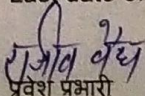 राजीव वैद्य
प्रवेश प्रभारी